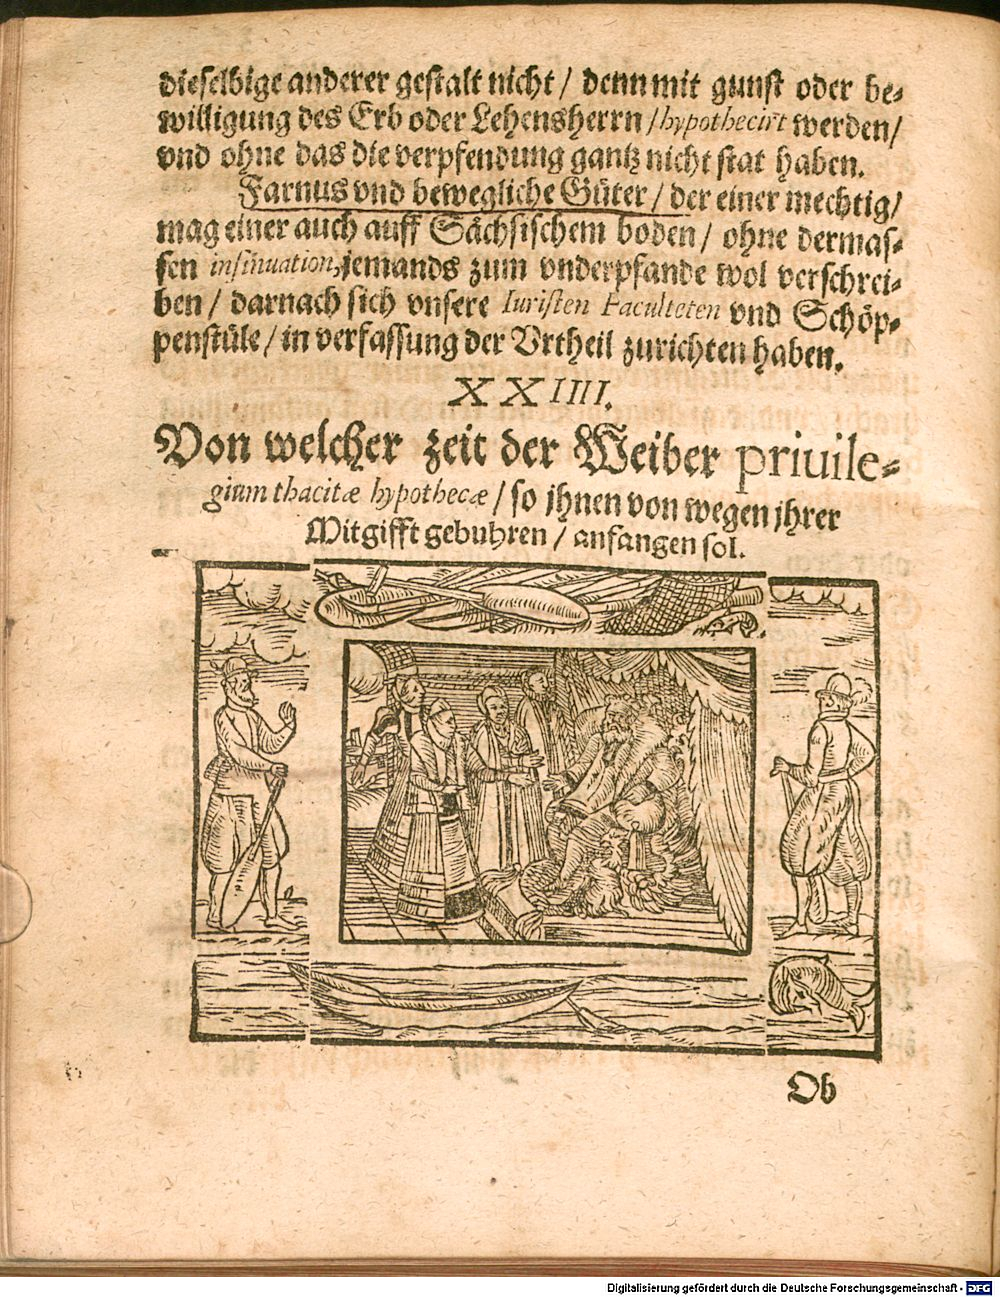 dieselbige anderer gestalt nicht / denn mit gunst oder be-
willigung des Erb oder Lehensherrn / hypothecirt werden /
vnd ohne das die verpfendung gantz nicht stat haben.
Farnus vnd bewegliche Güter / der einer mechtig /
mag einer auch auff Sächsischem boden / ohne dermas-
sen insinuation, jemands zum vnderpfande wol verschrei-
ben / darnach sich vnsere Iuristen Faculteten vnd Schöp-
penstüle / in verfassung der Vrtheil zurichten haben.
XXIIII.
Von welcher zeit der Weiber priuile-
gium thacitæ hypothecæ / so jhnen von wegen jhrer
Mitgifft gebuhren / anfangen sol.
Ob
Digitalisierung gefördert durch die Deutsche Forschungsgemeinschaft - DFG